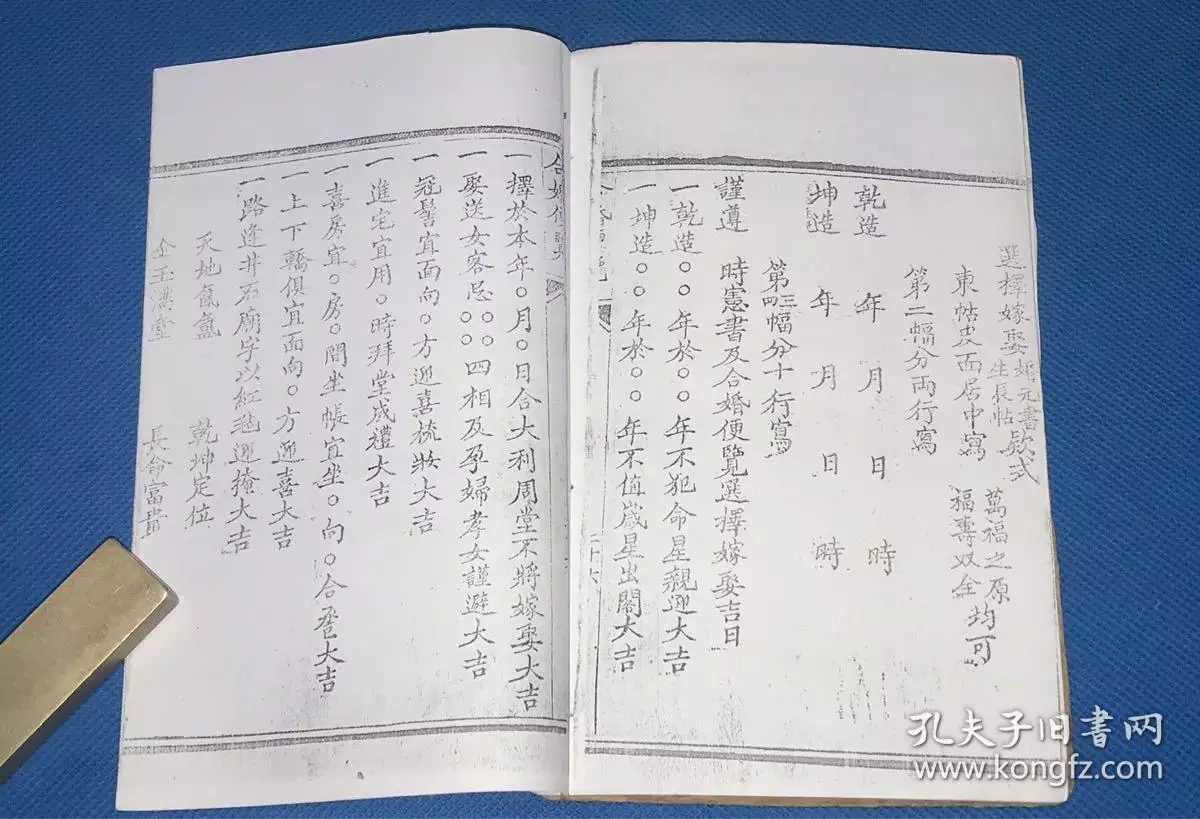 選擇嫁娶婚元書生辰帖欵式
東帖皮面居中寫 萬福之原 福壽双全 均可
第二幅分両行寫
乾造 年 月 日 時
坤造 年 月 日 時
第三四幅分十行寫
謹遵 時憲書及合婚便覽選擇嫁娶吉日
一乾造○○年於○○年不犯命星親迎大吉
一坤造○○年於○○年不值歲星出閣大吉
二十六
合婚便覽
一擇於本年○月○日合大利周堂不將嫁娶大吉
一娶送女客忌○○○四相及孕婦孝女謹避大吉
一冠髻宜面向○方迎喜梳妝大吉
一進宅宜用○時拜堂成禮大吉
一喜房宜○房○間坐帳宜坐○向○合卺大吉
一上下轎俱宜面向○方迎喜大吉
一路逢井石廟宇以紅毡遮掩大吉
天地氤氳 乾坤定位
金玉滿堂 長命富貴
孔夫子旧書网
www.kongfz.com